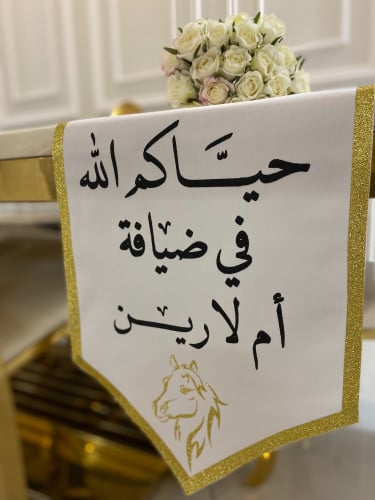 حيَّاكم الله
في ضيافة
أم لارين